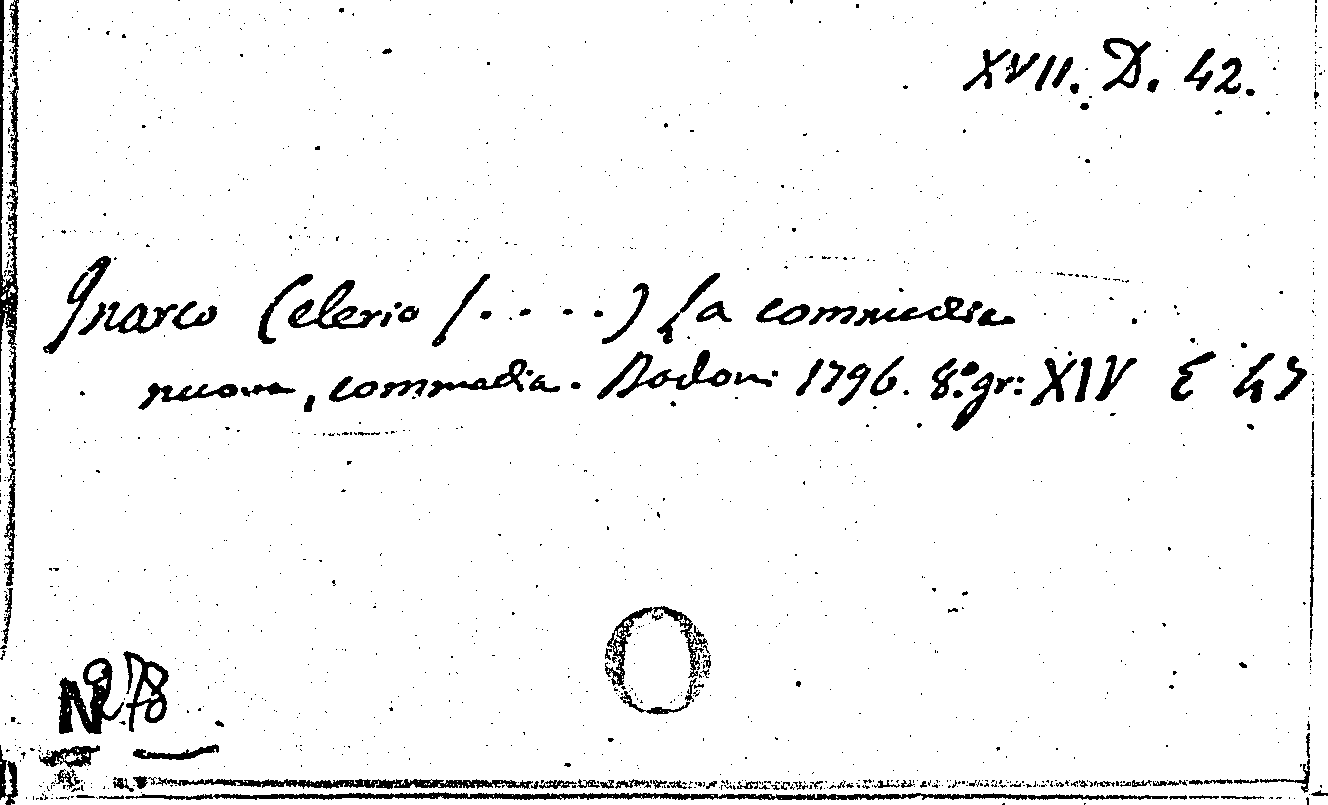 XVII. D. 42.
Inarco (Celerio / . . . . ) La commedia
nuova, commedia. Bodoni 1796. 8.º gr: XIV E 47
N 278